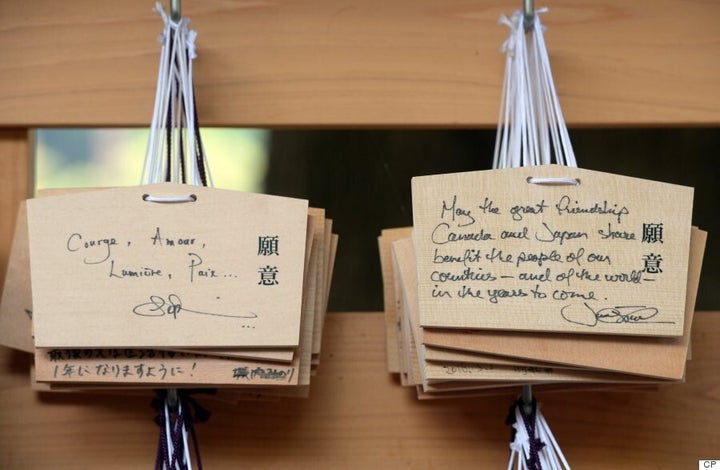 Courge, Amour,
Lumière, Paix ...
願意
1年になりますように!
May the great friendship
Canada and Japan share
benefit the people of our
countries - and of the world -
in the years to come.
願意
CP